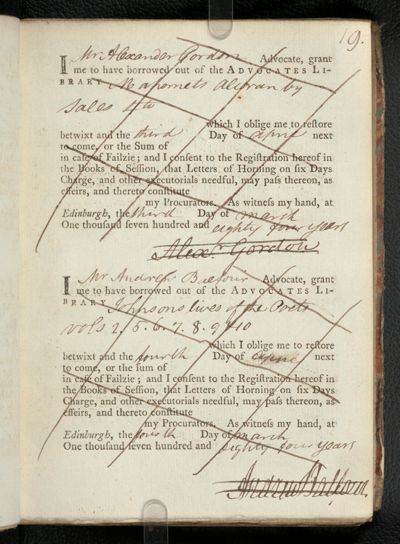 19.
I Mr. Alexander Gordon Advocate, grant
me to have borrowed out of the ADVOCATES LI-
BRARY Mahomets Alcoran by
Sales 4to
which I oblige me to reſtore
betwixt and the third Day of April next
to come, or the Sum of
in caſe of Failzie; and I conſent to the Regiſtration hereof in
the Books of Seſſion, that Letters of Horning on ſix Days
Charge, and other executorials needful, may paſs thereon, as
effeirs, and thereto conſtitute
my Procurators. As witneſs my hand, at
Edinburgh, the third Day of march
One thouſand ſeven hundred and eighty four years
Alexr. Gordon
I Mr Andrew Balfour Advocate, grant
me to have borrowed out of the ADVOCATES LI-
BRARY Johnsons lives of the Poets
vols 2. 5. 6. 7. 8. 9. 10
which I oblige me to reſtore
betwixt and the fourth Day of April next
to come, or the ſum of
in caſe of Failzie; and I conſent to the Regiſtration hereof in
the Books of Seſſion, that Letters of Horning on ſix Days
Charge, and other executorials needful, may paſs thereon, as
effeirs, and thereto conſtitute
my Procurators. As witneſs my hand, at
Edinburgh, the fourth Day of march
One thouſand ſeven hundred and eighty four years
Andrew Balfour.